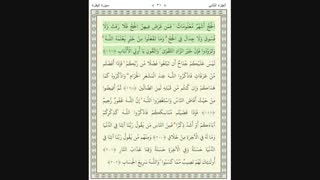 الجزء الثاني ٣١ سورة البقرة
الْحَجُّ أَشْهُرٌ مَّعْلُومَاتٌ فَمَن فَرَضَ فِيهِنَّ الْحَجَّ فَلَا رَفَثَ وَلَا
فُسُوقَ وَلَا جِدَالَ فِي الْحَجِّ وَمَا تَفْعَلُوا مِنْ خَيْرٍ يَعْلَمْهُ اللَّهُ
وَتَزَوَّدُوا فَإِنَّ خَيْرَ الزَّادِ التَّقْوَى وَاتَّقُونِ يَا أُولِي الْأَلْبَابِ ﴿١٩٧﴾
لَيْسَ عَلَيْكُمْ جُنَاحٌ أَن تَبْتَغُوا فَضْلًا مِّن رَّبِّكُمْ فَإِذَا أَفَضْتُم
مِّنْ عَرَفَاتٍ فَاذْكُرُوا اللَّهَ عِندَ الْمَشْعَرِ الْحَرَامِ وَاذْكُرُوهُ كَمَا
هَدَاكُمْ وَإِن كُنتُم مِّن قَبْلِهِ لَمِنَ الضَّالِّينَ ﴿١٩٨﴾ ثُمَّ أَفِيضُوا
مِنْ حَيْثُ أَفَاضَ النَّاسُ وَاسْتَغْفِرُوا اللَّهَ إِنَّ اللَّهَ غَفُورٌ رَّحِيمٌ
﴿١٩٩﴾ فَإِذَا قَضَيْتُم مَّنَاسِكَكُمْ فَاذْكُرُوا اللَّهَ كَذِكْرِكُمْ
آبَاءَكُمْ أَوْ أَشَدَّ ذِكْرًا فَمِنَ النَّاسِ مَن يَقُولُ رَبَّنَا آتِنَا فِي
الدُّنْيَا وَمَا لَهُ فِي الْآخِرَةِ مِنْ خَلَاقٍ ﴿٢٠٠﴾ وَمِنْهُم مَّن يَقُولُ رَبَّنَا آتِنَا فِي
الدُّنْيَا حَسَنَةً وَفِي الْآخِرَةِ حَسَنَةً وَقِنَا عَذَابَ النَّارِ ﴿٢٠١﴾
أُولَٰئِكَ لَهُمْ نَصِيبٌ مِّمَّا كَسَبُوا وَاللَّهُ سَرِيعُ الْحِسَابِ ﴿٢٠٢﴾